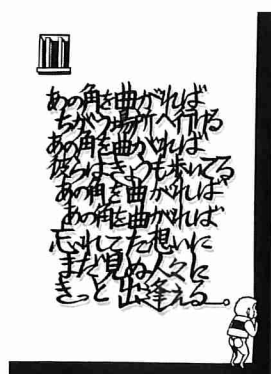 あの角を曲がれば
ちがう場所へ行ける
あの角を曲がれば
彼らはきょうも歩いてる
あの角を曲がれば
あの角を曲がれば
忘れてた想いに
まだ見ぬ人々に
きっと出逢える